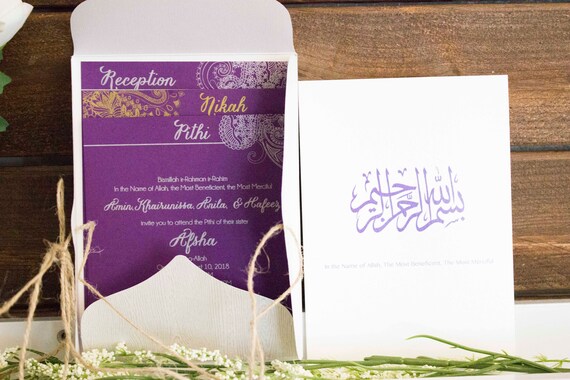 Reception
Nikah
Pithi
Bismillah ir-Rahman ir-Rahim
In the Name of Allah, the Most Beneficient, the Most Merciful
Amin, Khairunissa, Anila, & Hafeez
invite you to attend the Pithi of their sister
Afsha
10, 2018
بسم الله الرحمن الرحيم
In the Name of Allah, The Most Beneficient, The Most Merciful